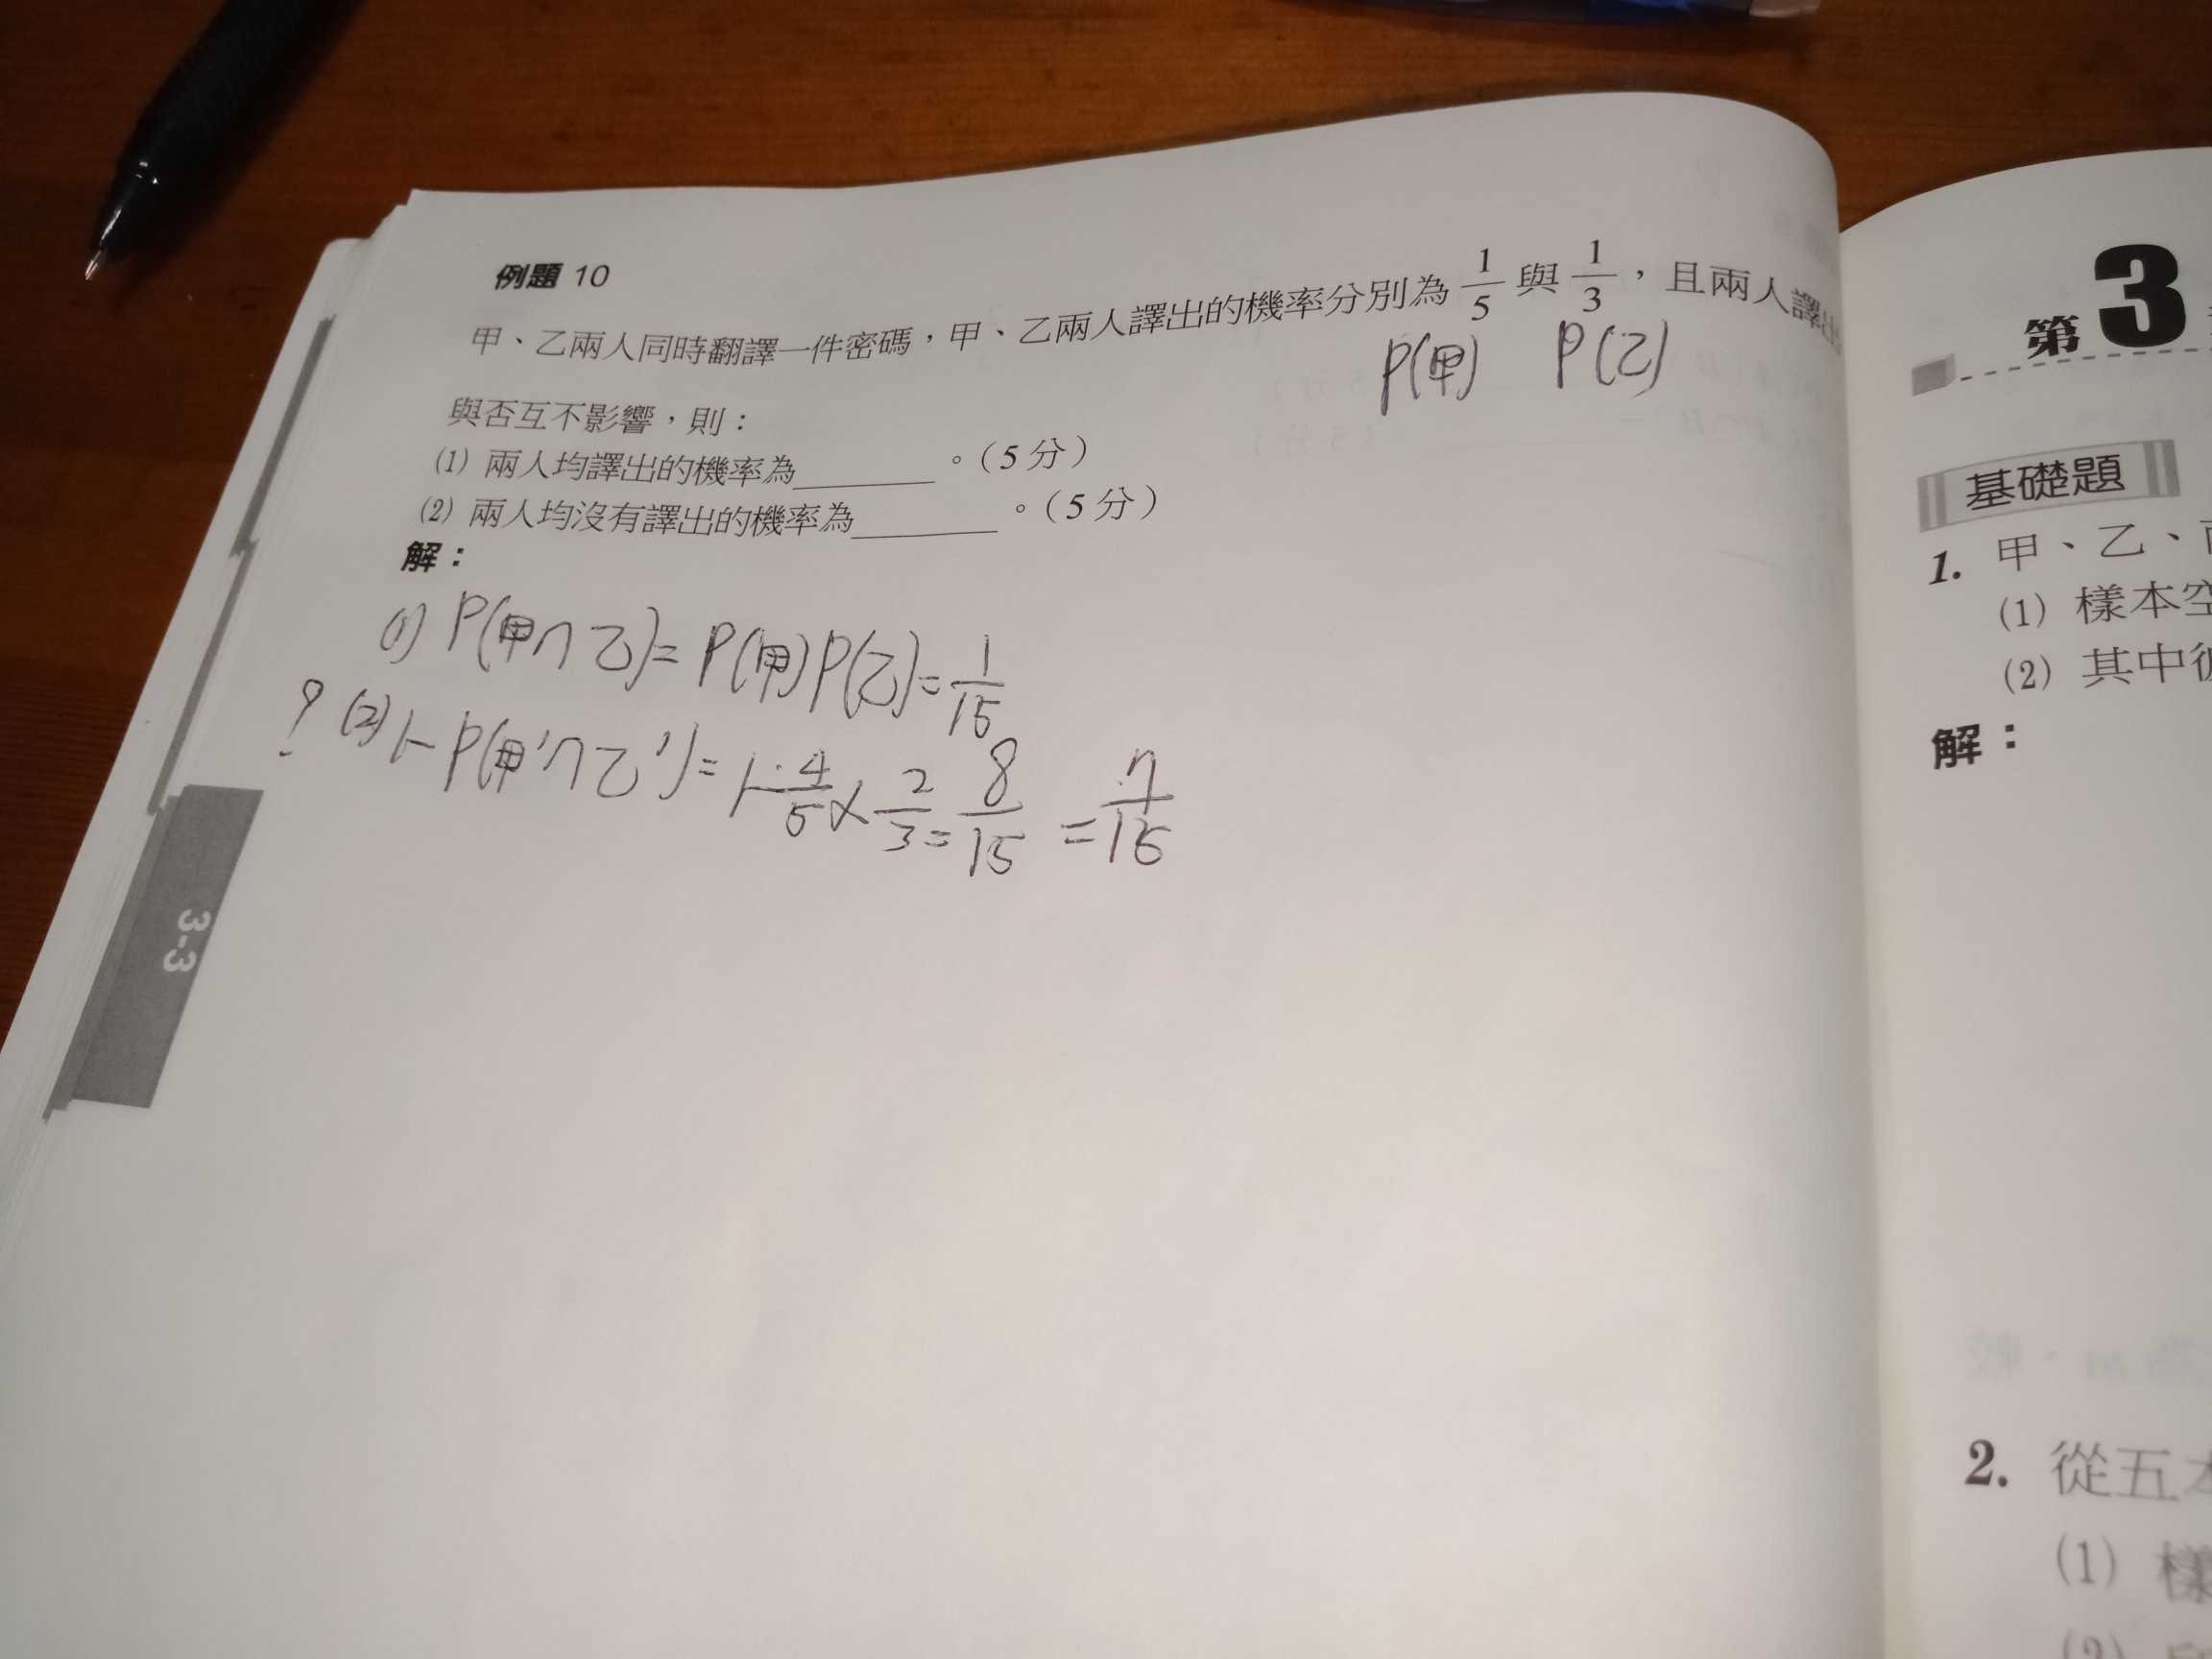 例題 10
甲、乙兩人同時翻譯一件密碼，甲、乙兩人譯出的機率分別為 1/5 與 1/3，且兩人譯出
P(甲) P(乙)
與否互不影響，則：
(1) 兩人均譯出的機率為________。（5 分）
(2) 兩人均沒有譯出的機率為________。（5 分）
解：
(1) P(甲∩乙)= P(甲)P(乙)= 1/15
? (2) 1- P(甲'∩乙')= 1- 4/5 × 2/3 = 8/15 = 7/15
3-3
第 3
基礎題
1. 甲、乙、
(1) 樣本空
(2) 其中
解：
2. 從五本
(1) 樣